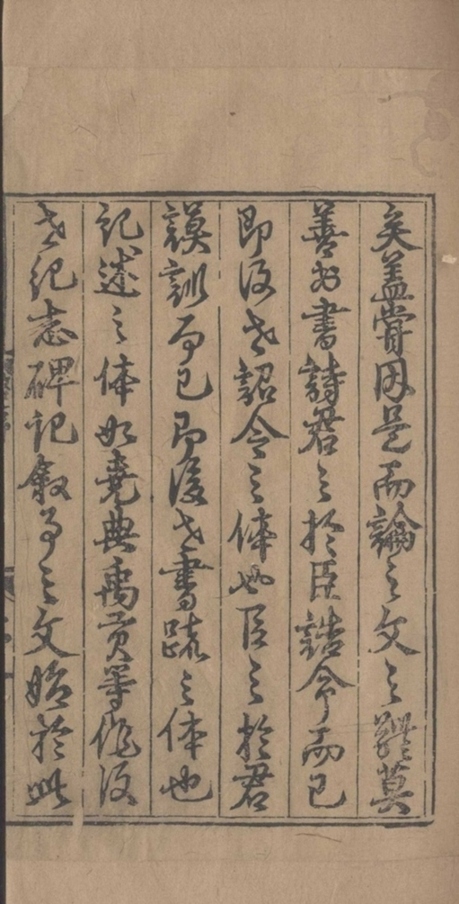 矣盖嘗因是而論之文之體莫
善於書詩君之於臣誥命而已
即後世詔令之体也臣之於君
謨訓而已即後世書疏之体也
記述之体如堯典禹貢等作後
世紀志碑記叙事之文始於此